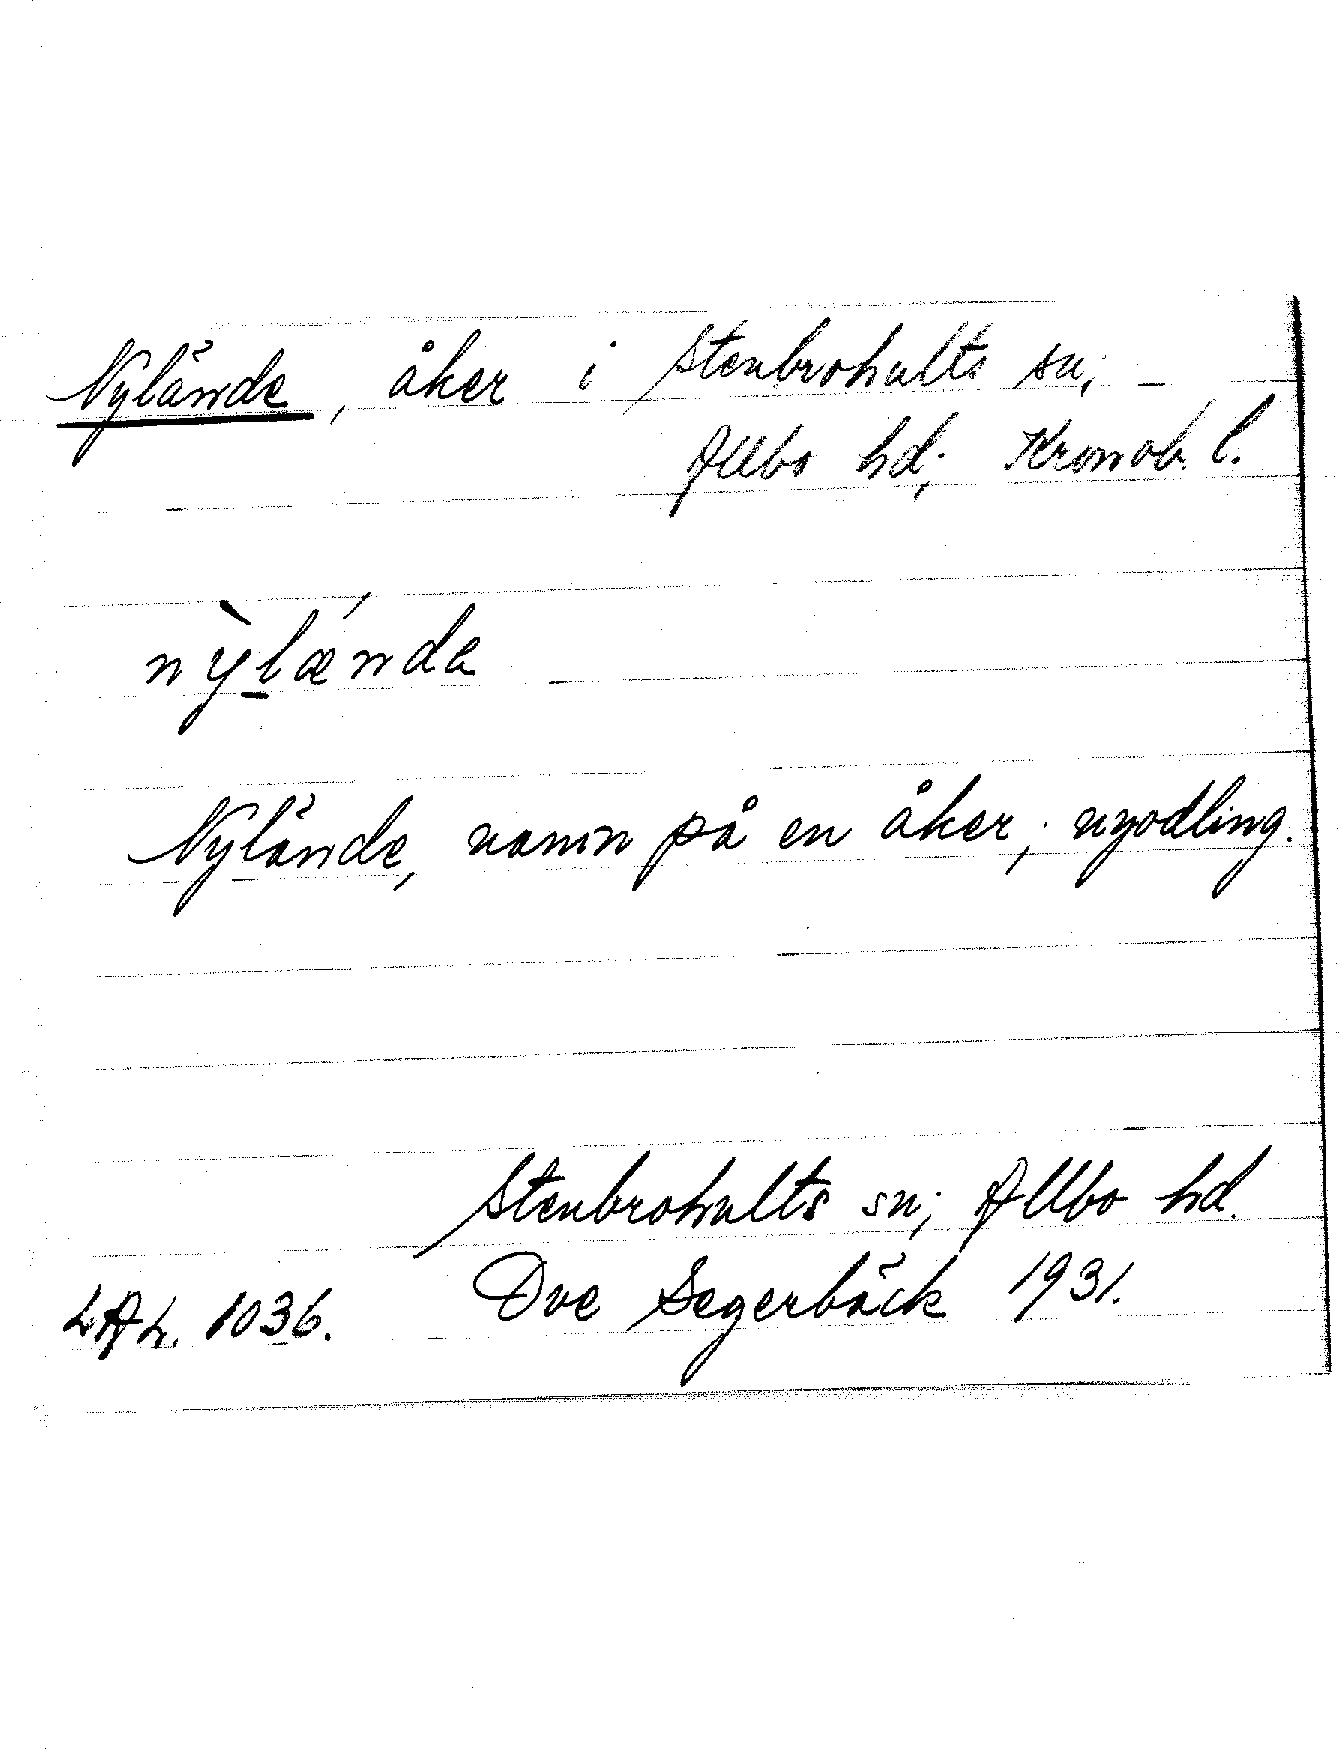 Nylände, åker i Stenbrohults sn; –
Allbo hd; Kronob. l.
ny̆̀lǽnda
Nylände, namn på en åker; nyodling.
Stenbrohults sn; Allbo hd.
LAL. 1036. Ove Segerbäck 1931.